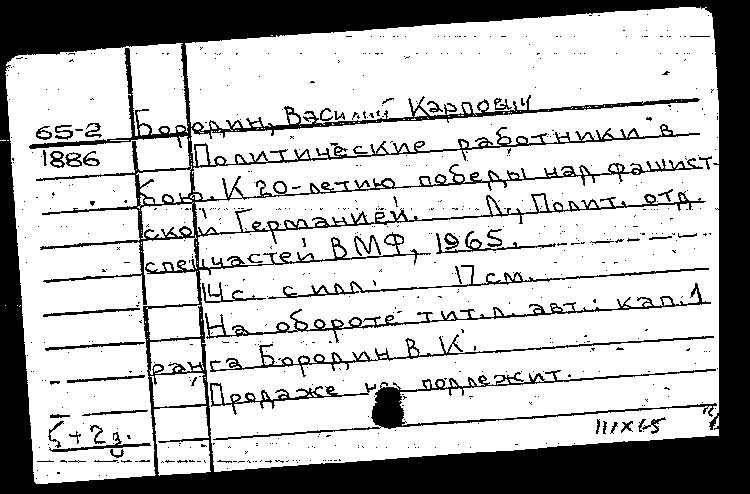 65-2 Бородин, Василий Карпович
1886 Политические работники в
бою. К 20-летию победы над фашист-
ской Германией. Л., Полит. отд.
спецчастей ВМФ, 1965.
14с. с илл. 17 см.
На обороте тит. л. авт.: кап. 1
ранга Бородин В. К.
Продаже не подлежит.
5+2д.